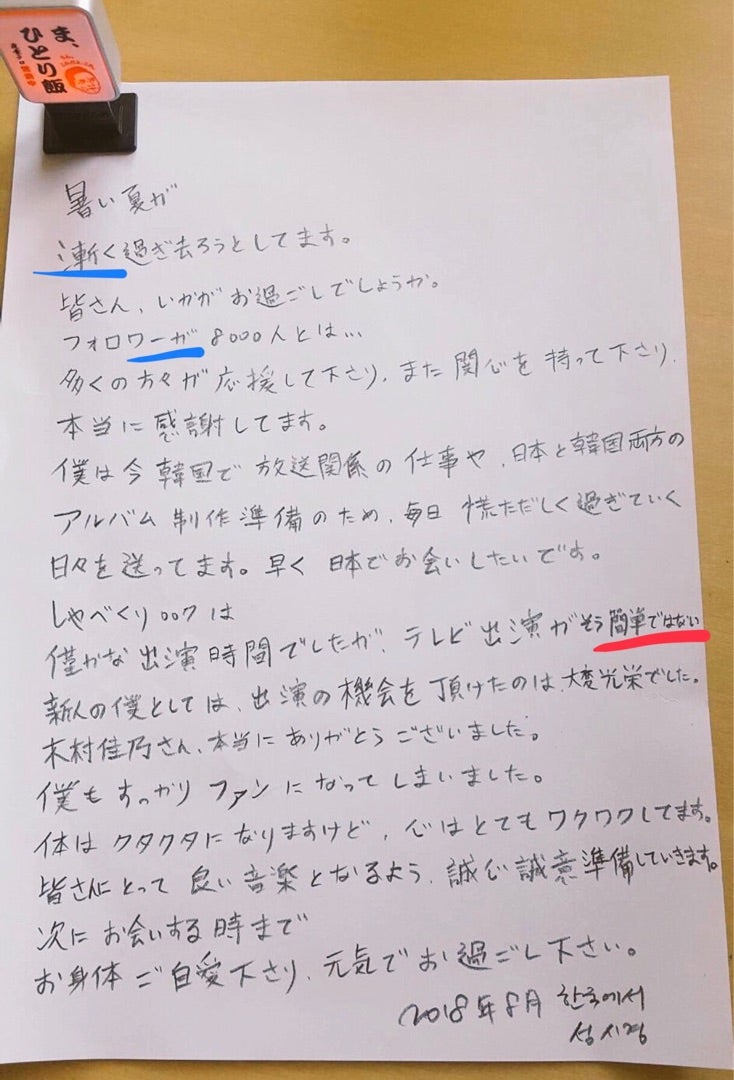 ま、
ひとり飯
暑い夏が
漸く過ぎ去ろうとしてます。
皆さん、いかがお過ごしでしょうか。
フォロワーが8000人とは…
多くの方々が応援して下さり、また関心を持って下さり、
本当に感謝してます。
僕は今韓国で放送関係の仕事や、日本と韓国両方の
アルバム制作準備のため、毎日慌ただしく過ぎていく
日々を送ってます。早く日本でお会いしたいです。
しゃべくり007は
僅かな出演時間でしたが、テレビ出演がそう簡単ではない
新人の僕としては、出演の機会を頂けたのは、大変光栄でした。
木村佳乃さん、本当にありがとうございました。
僕もすっかりファンになってしまいました。
体はクタクタになりますけど、心はとてもワクワクしてます。
皆さんにとって良い音楽となるよう、誠心誠意準備していきます。
次にお会いする時まで
お身体ご自愛下さり、元気でお過ごし下さい。
2018年8月 한국에서
성시경